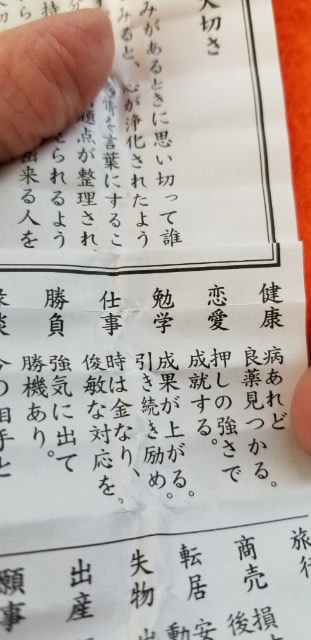 大切さ
みがあるときに思い切って誰
みると、心が浄化されたよう
言葉にするこ
題点が整理され
られるよう
出来る人を
健康
病あれど
良薬見つかる。
恋愛
押しの強さで
成就する。
勉学
成果が上がる。
引き続き励め。
仕事
時は金なり、
俊敏な対応を。
勝負
強気に出て
勝機あり。
縁談
今の相手と
旅行
商売
損
後
転居
安
動
失物
出
出産
願事